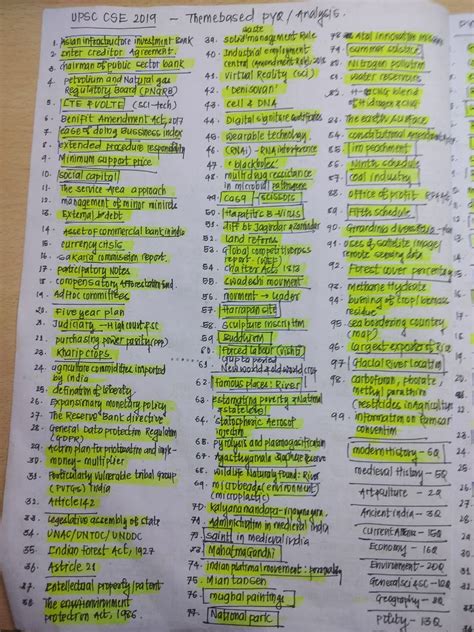 UPSC CSE 2019 – Themebased PYQ / Analysis.
1. Asian infrastructure investment Bank
2. Inter creditor Agreement.
3. chairman of public sector bank
4. petroleum and Natural gas
Regulatory Board (PNGRB)
5. LTE & VOLTE (SCI-tech)
6. Benifit Amendment Act, 2017
7. ease of doing Bussiness index
8. extended procedure responsibility
9. Minimum support price
10. Social capital
11. The service Area approach
12. management of minor
13. External debt
14. Asset of commercial bank in india
15. currency crisis
16. commission report.
17. participatory notes
18. compensatory Afforestation fund.
19. AdHoc committees
20. Five year plan
21. Judicary → High court & SC
22. purchasing power parity (PPP)
23. kharip crops
24. agriculture committies imported
by india
25. defination of liberty.
26. Expansionary monetary policy
27. The Reserve "Bank directive"
28. General Data protection Regulation
(GDPR)
29. Action plan for priotization and
30. money - multiplier
31. Particularly vulnerable tribal group
(PVTGS) india
32. Article 142
33. Legislative assembly of state
34. UNAC/UNTOC/UNODC
35. Indian Forest Act, 1927
36. Article 21
37. Intellectual property/patent
38. The envionvironment
protection Act, 1986.
waste
39. Solid management Rule
40. Industrial employment
central (amendment Rule) 2018
41. Virtual Reality (sci)
42. 'Denisovan'
43. cell & DNA
44. Digital signature certificates
45. wearable technology
46. (RNAi) - RNA interference
47. 'blackholes'
48. multidrug resistance
in microbial pathogens
49. cas9 → scissors
50. Hepatitis B-virus
51. diff bt Jagirdar & zamindar
52. Land reforms
53. Global competitiveness
report (WEF)
54. charter Act 1813
55. swadeshi movement
56. movment → leader
57. Harrapan site
58. sculpture inscription
59. Buddhism
60. Forced labour (vishti)
Gupta period
61. New world & old world crop
62. Famous places : River
63. estimating poverty
statelevel
64. Aerosol
65. Pyrolysis and plasmagasification
67. Agasthyamala Biosphere reserve
68. wildlife Naturaly found : River
69. microbeads (environment)
(microplastic)
70. kalyana mandapa - vijaynagara.
71. Administration in medieval india
72. saint in medieval india
73. Mahatma Gandhi
74. indian political movement :
75. Mian tansen
76. mughal paintings
77. National park
78. Atal innovation mission
79. summer solstice
80. Nitrogen pollution
81. water reserviors
82. H-CNG blend
of Hidrogen & CNG
83. The earth surface
84. constitutional Amendment
85. Impeachment
86. Ninth schedule
87. coal industry
88. office of profit
89. Fifth schedule
91. uses of satelite images/
remote sensing data
92. Forest cover percentage
93. methane Hydrate
94. burning of crop/biomass
residue
95. sea bordering country
(map)
96. largest exporter of rice
97. Glacial River Location
98. carbofuran, phorate,
methyl parathion
(pesticides in Agriculture)
99. information on ramsar
convention
modern History - 6Q
medieval History - 5Q
Art & culture - 2Q
Ancient india - 3Q
Current Affairs - 15Q
Economy - 16Q
Environment - 20Q
General sci & SC - 10Q
Geography - 8Q
Polity - 13Q